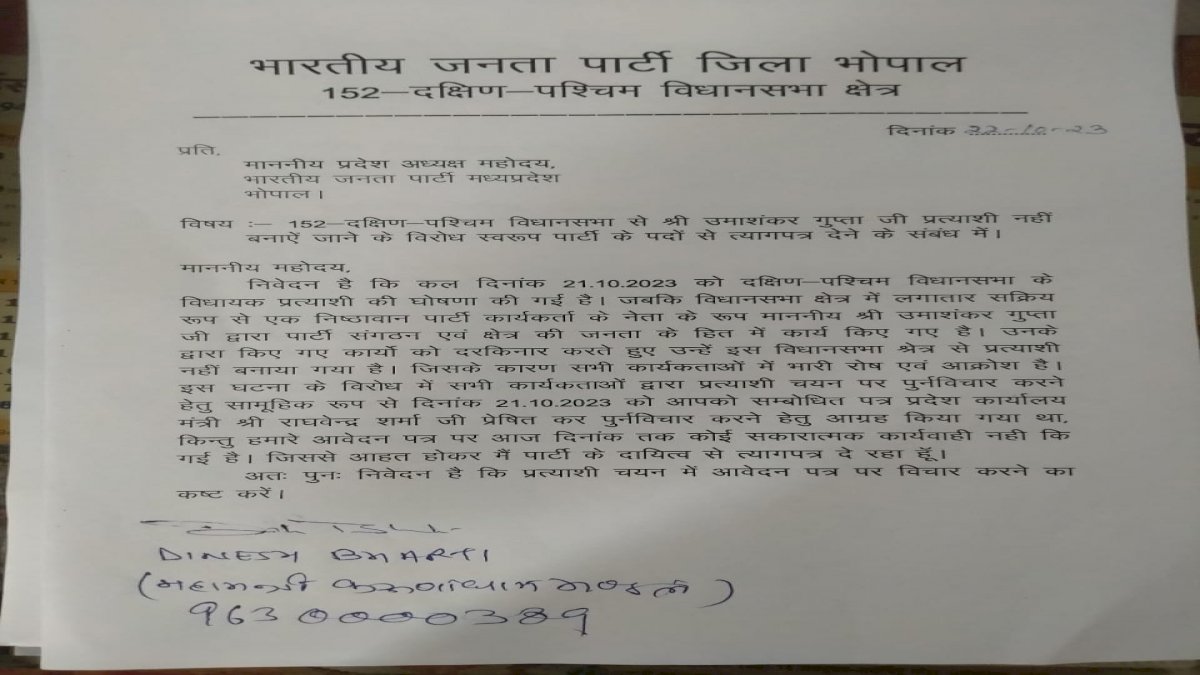 भारतीय जनता पार्टी जिला भोपाल
152–दक्षिण–पश्चिम विधानसभा क्षेत्र
दिनांक 22-10-23
प्रति,
माननीय प्रदेश अध्यक्ष महोदय,
भारतीय जनता पार्टी मध्यप्रदेश
भोपाल।
विषय :– 152–दक्षिण–पश्चिम विधानसभा से श्री उमाशंकर गुप्ता जी प्रत्याशी नहीं
बनाऐं जाने के विरोध स्वरूप पार्टी के पदों से त्यागपत्र देने के संबंध में।
माननीय महोदय,
निवेदन है कि कल दिनांक 21.10.2023 को दक्षिण–पश्चिम विधानसभा के
विधायक प्रत्याशी की घोषणा की गई है। जबकि विधानसभा क्षेत्र में लगातार सक्रिय
रूप से एक निष्ठावान पार्टी कार्यकर्ता के नेता के रूप माननीय श्री उमाशंकर गुप्ता
जी द्वारा पार्टी संगठन एवं क्षेत्र की जनता के हित में कार्य किए गए है। उनके
द्वारा किए गए कार्यो को दरकिनार करते हुए उन्हें इस विधानसभा श्रेत्र से प्रत्याशी
नहीं बनाया गया है। जिसके कारण सभी कार्यकताओं में भारी रोष एवं आक्रोश है।
इस घटना के विरोध में सभी कार्यकताओं द्वारा प्रत्याशी चयन पर पुर्नविचार करने
हेतु सामूहिक रूप से दिनांक 21.10.2023 को आपको सम्बोधित पत्र प्रदेश कार्यालय
मंत्री श्री राघवेन्द्र शर्मा जी प्रेषित कर पुर्नविचार करने हेतु आग्रह किया गया था,
किन्तु हमारे आवेदन पत्र पर आज दिनांक तक कोई सकारात्मक कार्यवाही नही कि
गई है। जिससे आहत होकर मैं पार्टी के दायित्व से त्यागपत्र दे रहा हूॅं।
अतः पुनः निवेदन है कि प्रत्याशी चयन में आवेदन पत्र पर विचार करने का
कष्ट करें।
DINESH BHARTI
(महामन्त्री मण्डल)
9630000389